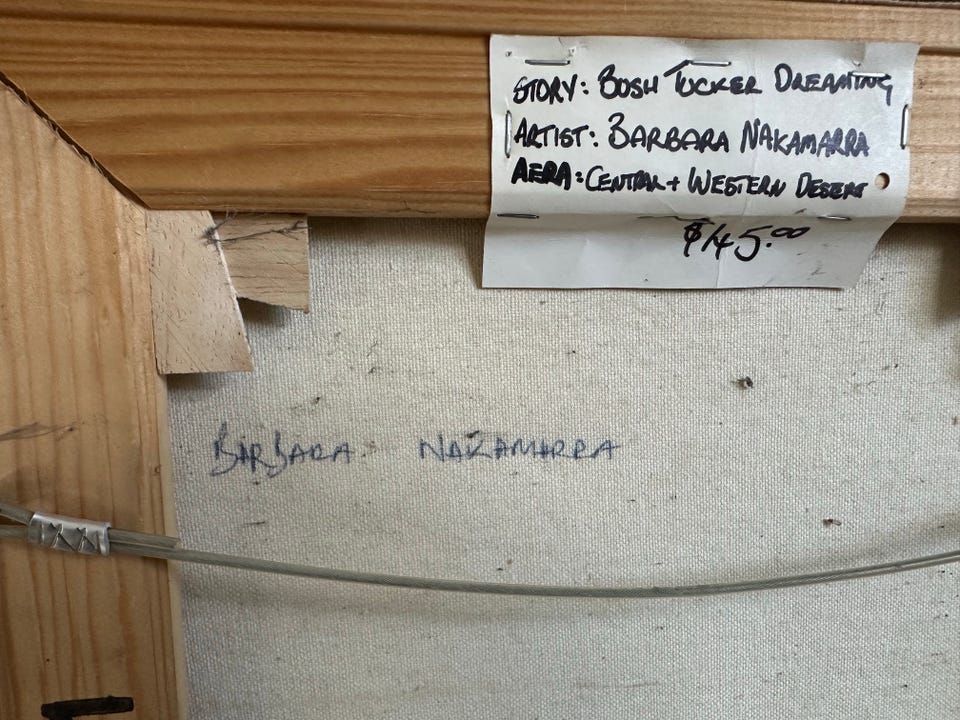 STORY: BUSH TUCKER DREAMING
ARTIST: BARBARA NAKAMARRA
AERA: CENTRAL + WESTERN DESERT
$145.00
BARBARA NAKAMARRA